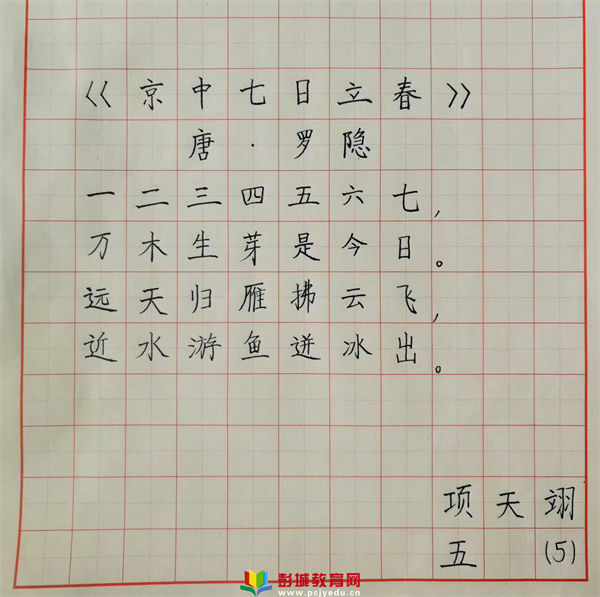 《京中七日立春》
唐·罗隐
一二三四五六七，
万木生芽是今日。
远天归雁拂云飞，
近水游鱼迸冰出。
项天翊
五(5)
彭城教育网
www.pcjyedu.cn